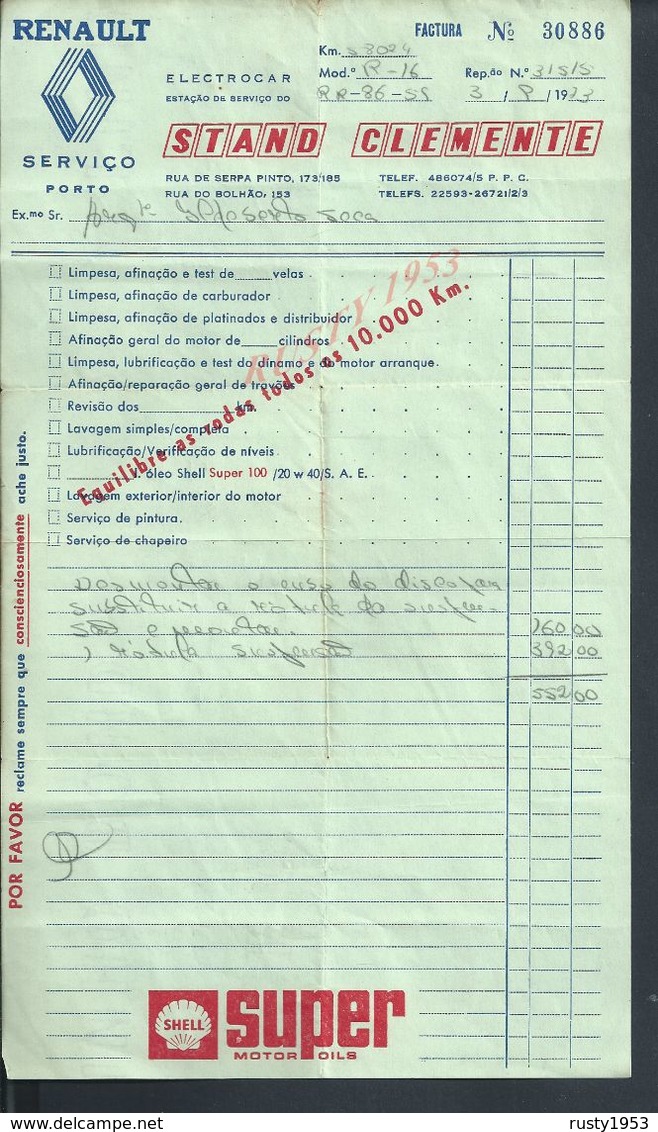 RENAULT
SERVIÇO
PORTO
FACTURA Nº 30886
Km. 58024
Mod.º R-16 Rep.ão N.º 31515
RR-86-55 3 / 9 / 1973
ELECTROCAR
ESTAÇÃO DE SERVIÇO DO
STAND CLEMENTE
RUA DE SERPA PINTO, 173/185 TELEF. 486074/5 P. P. C.
RUA DO BOLHÃO, 153 TELEFS. 22593-26721/2/3
Ex.mo Sr.
Limpesa, afinação e test de____velas
Limpesa, afinação de carburador
Limpesa, afinação de platinados e distribuidor
Afinação geral do motor de____cilindros
Limpesa, lubrificação e test do dínamo e do motor arranque
Afinação/reparação geral de travões
Revisão dos____Km.
Lavagem simples/completa
Lubrificação/Verificação de níveis
____V. óleo Shell Super 100 /20 w 40/S. A. E.
Lavagem exterior/interior do motor
Serviço de pintura
Serviço de chapeiro
Equilibre as rodas todos os 10.000 Km.
RUSTY 1953
Desmontar o disco para
substituir a rótula da suspen-
são e montar. 160 00
1 rótula suspensão 392 00
552 00
POR FAVOR reclame sempre que conscienciosamente ache justo.
SHELL super
MOTOR OILS
www.delcampe.net
rusty1953